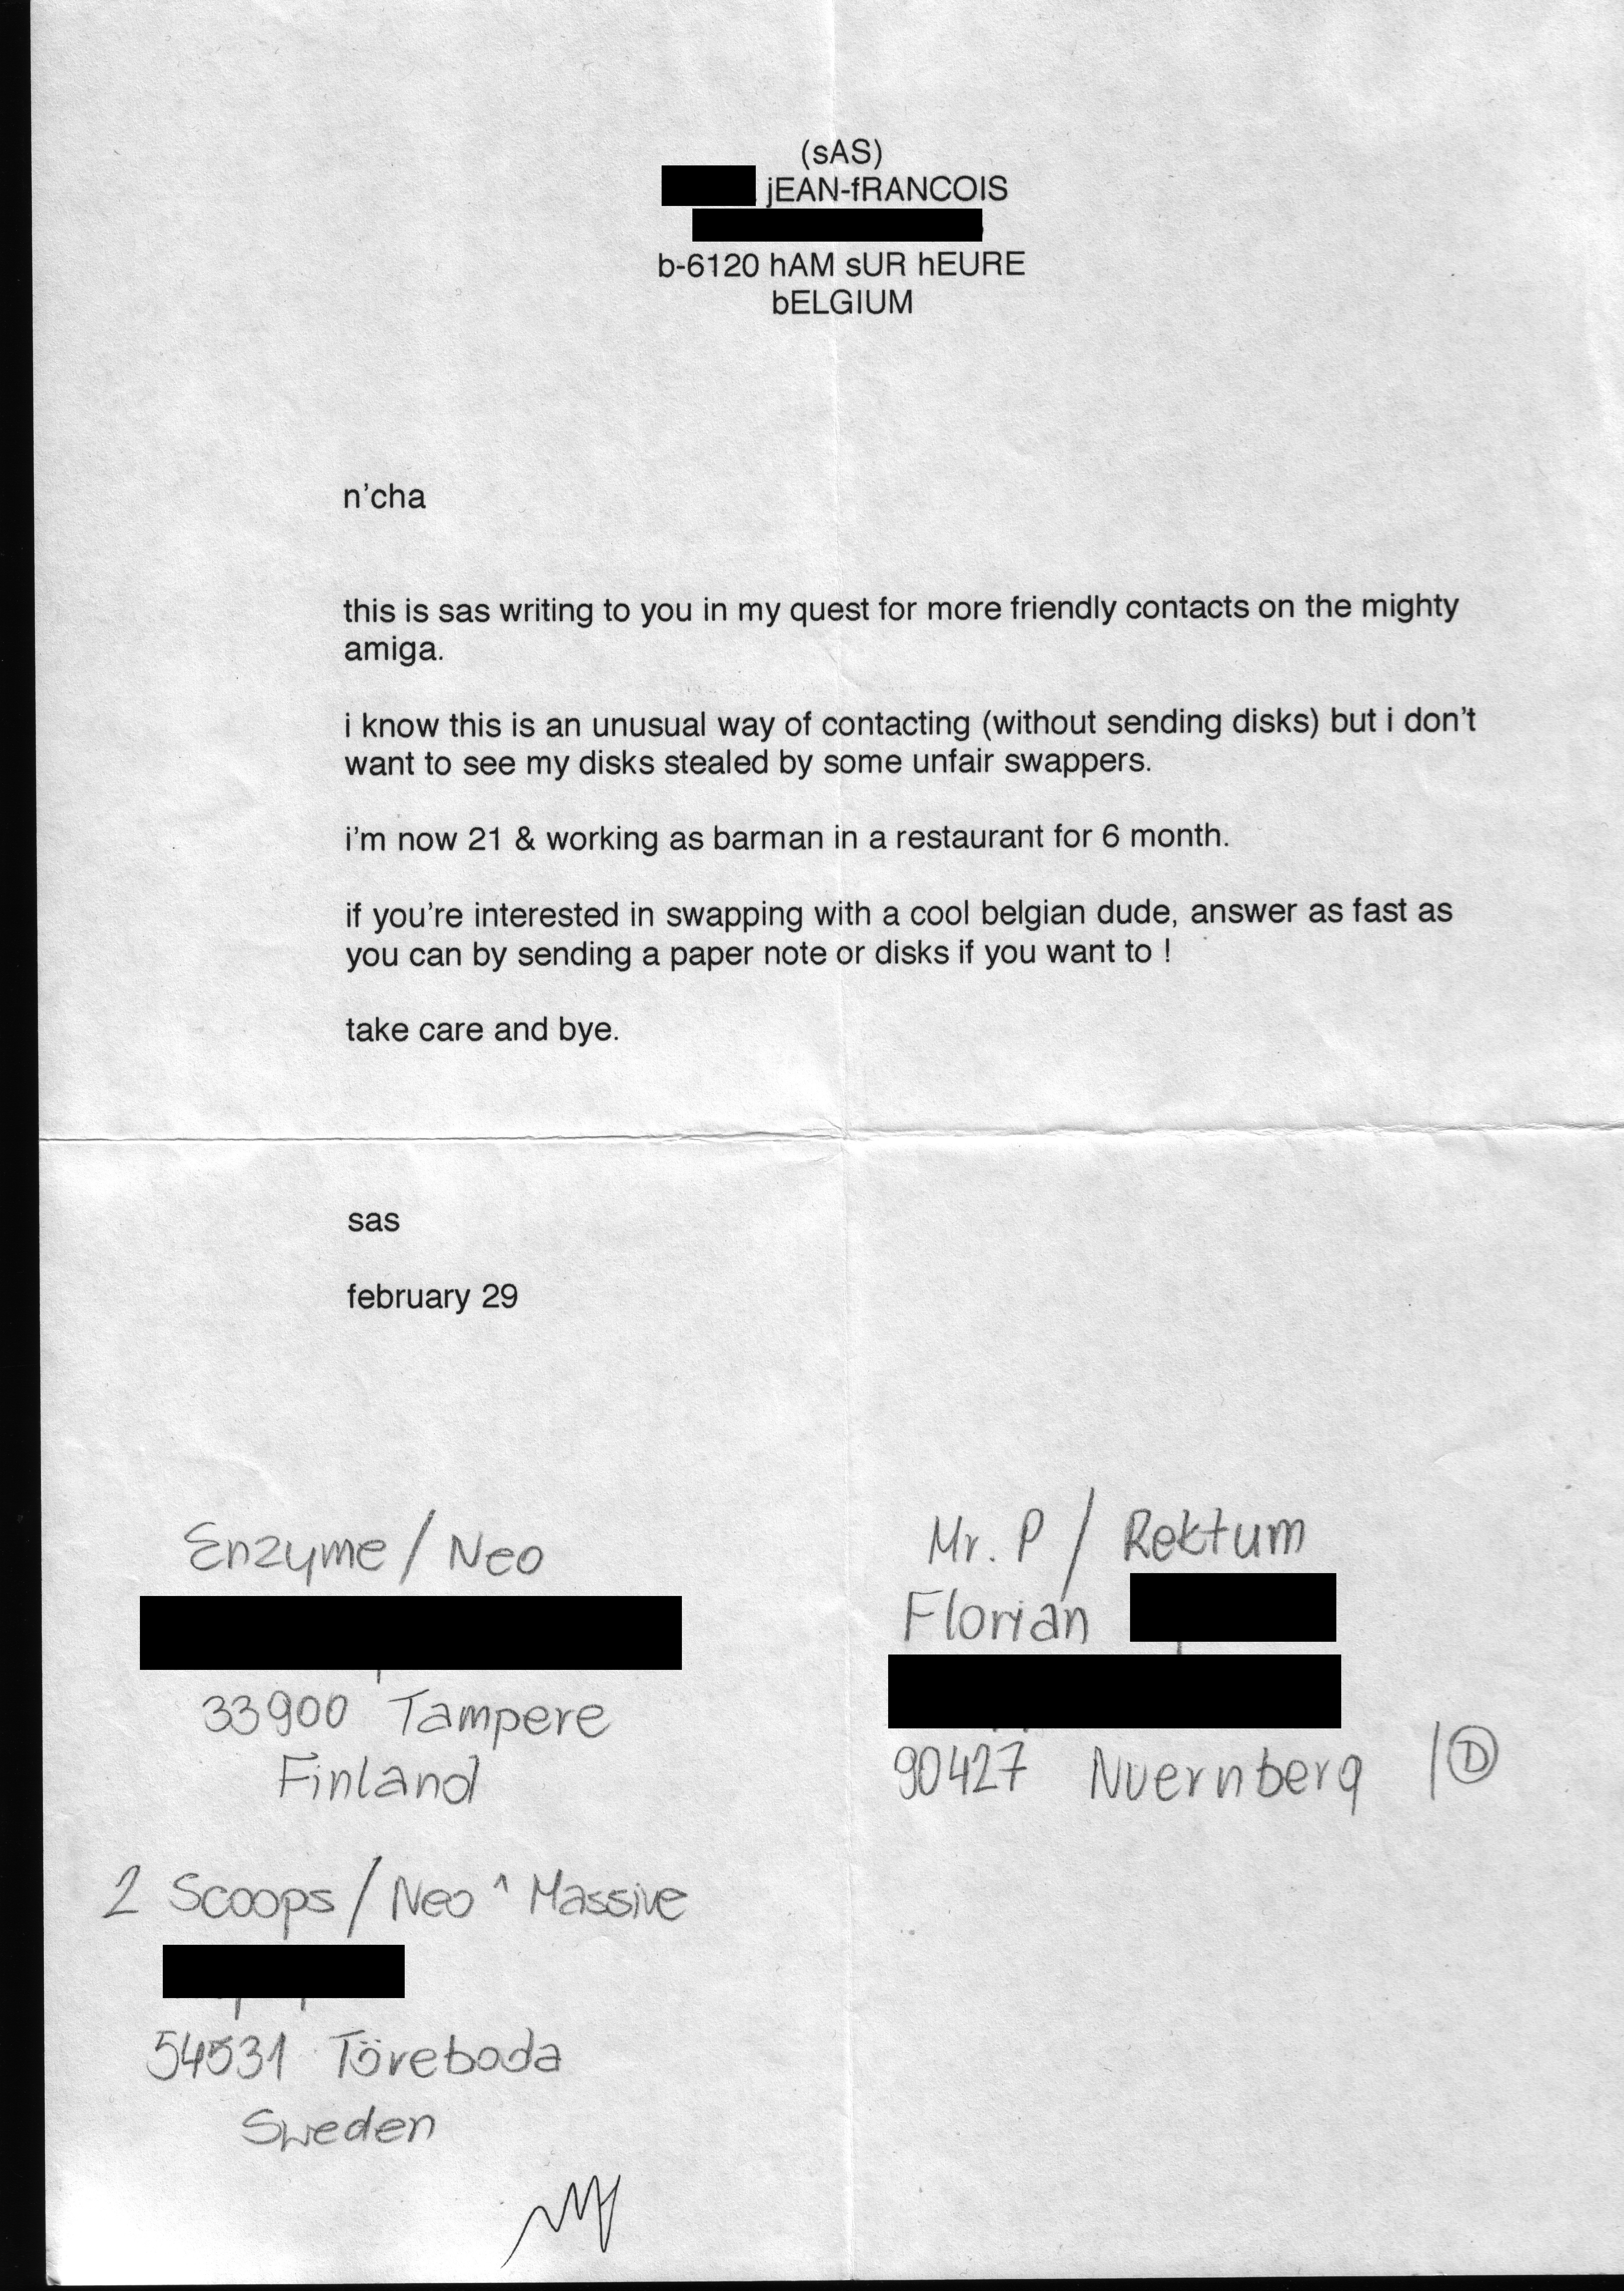 (sAS)
jEAN-fRANCOIS
b-6120 hAM sUR hEURE
bELGIUM
n'cha
this is sas writing to you in my quest for more friendly contacts on the mighty
amiga.
i know this is an unusual way of contacting (without sending disks) but i don't
want to see my disks stealed by some unfair swappers.
i'm now 21 & working as barman in a restaurant for 6 month.
if you're interested in swapping with a cool belgian dude, answer as fast as
you can by sending a paper note or disks if you want to !
take care and bye.
sas
february 29
Enzyme / Neo
33900 Tampere
Finland
2 Scoops / Neo ^ Massive
54531 Töreboda
Sweden
Mr. P / Rektum
Florian
90427 Nuernberg / D